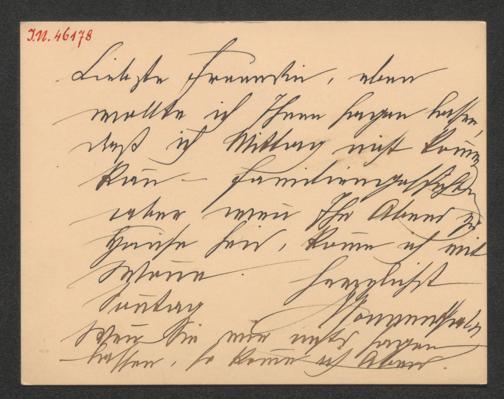 I.N. 46178
Liebste Freundin, eben
wollte ich Ihnen sagen lassen,
daß ich Mittag nicht komme
kann – Familiengeschichten
aber wenn Ihr Abend zu
Hause seid, komme ich mit
Wonne. Herzlichst
Sonntag
Wenn Sie mir nichts sagen
lassen, so komme ich Abend.